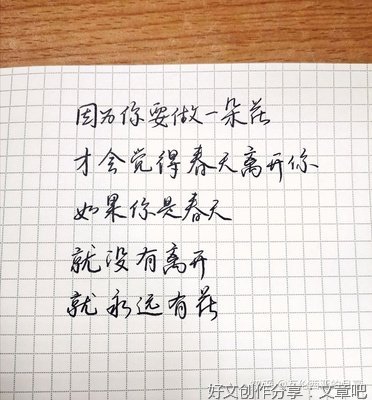 因为你要做一朵花
才会觉得春天离开你
如果你是春天
就没有离开
就永远有花
好文创作分享：文章吧